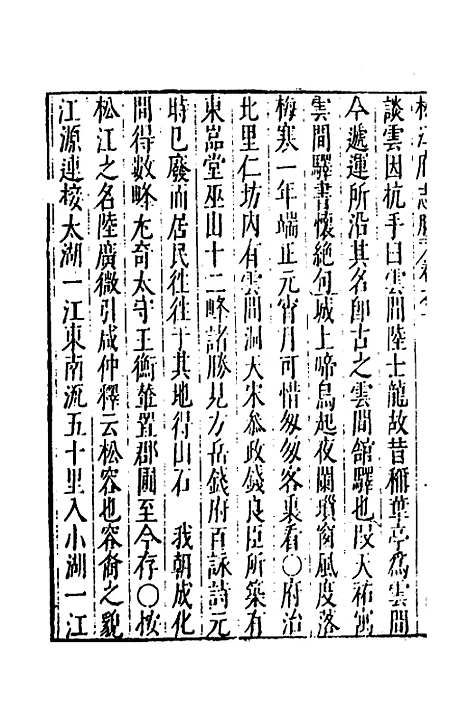 松江府志勝
談雲因抗手曰雲間陸士龍故昔稱華亭爲雲間
今遞運所沿其名卽古之雲間舘驛也叚天祐寓
雲間驛書懷絶句城上啼烏起夜闌瑣窗風度落
梅寒一年端正元宵月可惜匆匆客裏看○府治
北里仁坊內有雲間洞天宋叅政錢良臣所築有
東嵓堂巫山十二峰諸勝見方岳錢府百詠詩元
時巳廢而居民徃徃于其地得山石　我朝成化
間得數峰尢奇太守王衡輦置郡圃至今存○按
松江之名陸廣微引咸仲釋云松容也容裔之貌
江源連接太湖一江東南流五十里入小湖一江